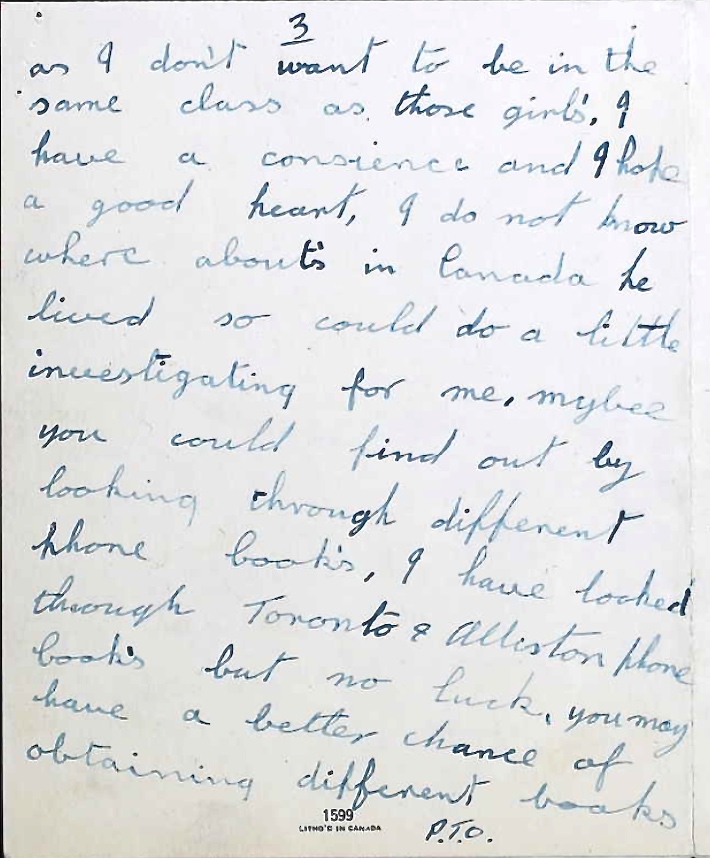 3
as I don't want to be in the
same class as those girls', I
have a consience and I hope
a good heart, I do not know
where abouts in Canada he
lived so could do a little
investigating for me, mybee
you could find out by
looking through different
phone book's, I have looked
through Toronto & Alliston phone
book's but no luck, you may
have a better chance of
obtaining different books
1599
LITHO'D IN CANADA
P.T.O.